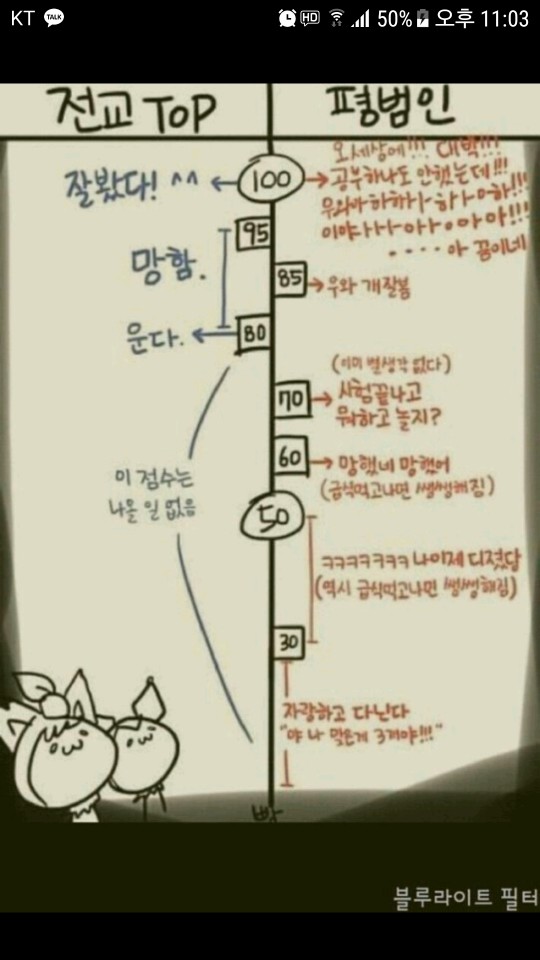 KT TALK HD 50% 오후 11:03
전교 TOP
평범인
잘봤다! ^^
100
오 세상에!!! 대박!!!
공부하나도 안했는데!!!
우와아하하하ㅏ하ㅏ아하!!!
이야ㅏㅏㅏ아ㅏ아아아!!!
···· 아 꿈이네
95
망함.
85
우와 개잘봄
운다.
80
(이미 별생각 없다)
70
시험끝나고
뭐하고 놀지?
60
망했네 망했어
(급식먹고나면 쌩쌩해짐)
이 점수는
나올 일 없음
50
ㅋㅋㅋㅋㅋㅋㅋ 나이제 디졌당
(역시 급식먹고나면 쌩쌩해짐)
30
자랑하고 다닌다
"야 나 맞은게 3개야!!!"
빵
블루라이트 필터